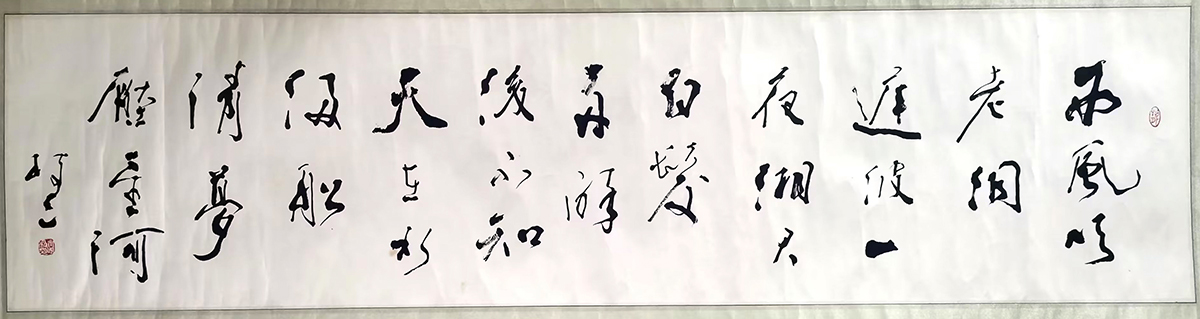 西風吹
老洞
庭波一
夜湘君
白髮
多醉
後不知
天在水
滿船
清夢
壓星河